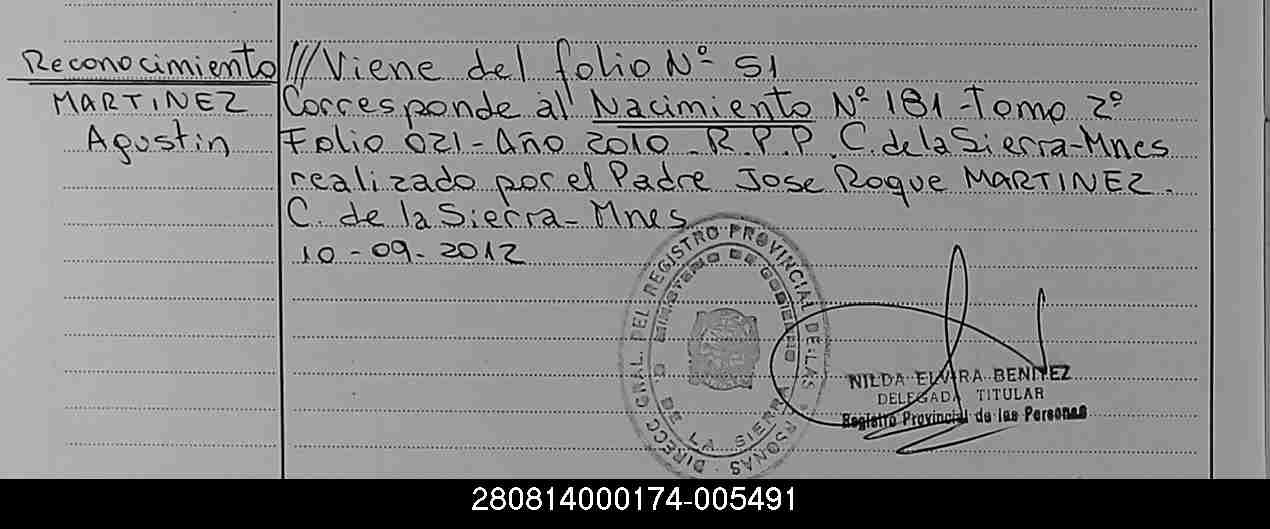 Reconocimiento
MARTINEZ
Agustin
///Viene del folio Nº 51
Corresponde al Nacimiento Nº 181-Tomo 2º
Folio 021-Año 2010-R.P.P. C. de la Sierra-Mnes
realizado por el Padre Jose Roque MARTINEZ.
C. de la Sierra-Mnes
10-09-2012
DIRECC. GRAL. DEL REGISTRO PROVINCIAL DE LAS PERSONAS
MINISTERIO DE GOBIERNO
C. DE LA SIERRA
NILDA ELVIRA BENITEZ
DELEGADA TITULAR
Registro Provincial de las Personas
280814000174-005491